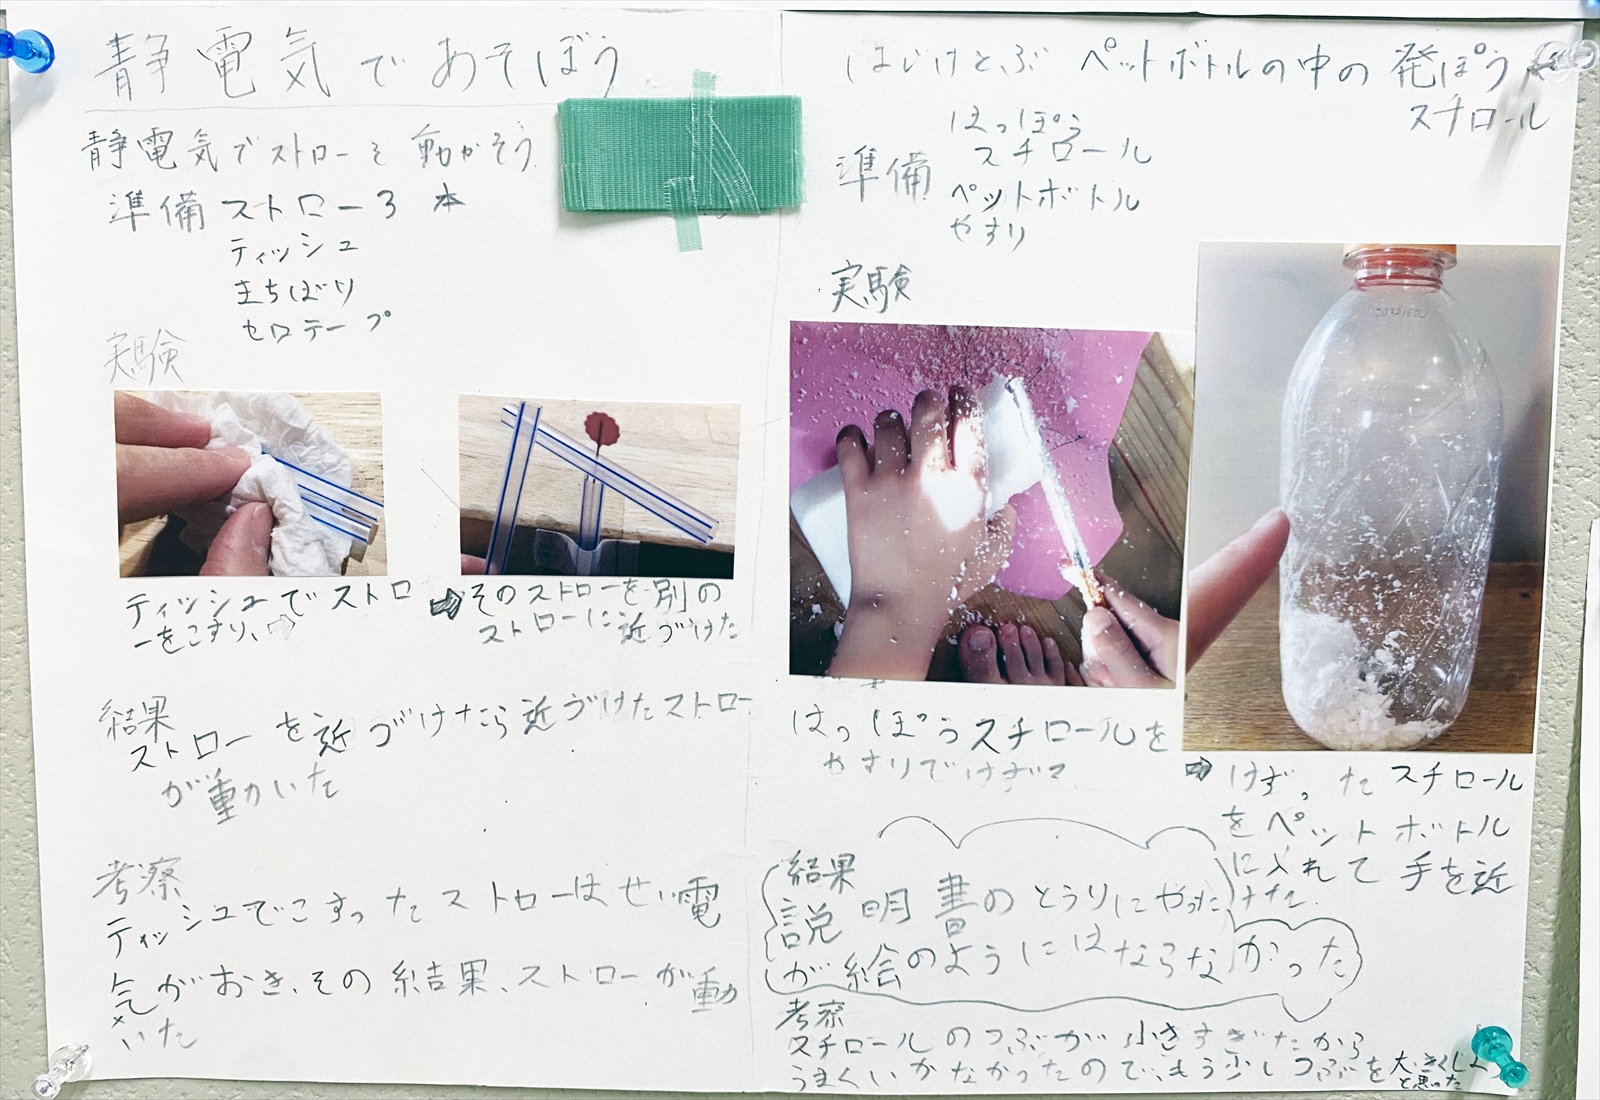 静電気であそぼう
静電気でストローを動かそう
準備 ストロー3本
ティッシュ
まちばり
セロテープ
実験
ティッシュでストロ
ーをこすり、
⇒そのストローを別の
ストローに近づけた
結果
ストローを近づけたら近づけたストロー
が動いた
考察
ティッシュでこすったストローはせい電
気がおき、その結果、ストローが動
いた
はじけとぶ ペットボトルの中の発ぽう
スチロール
準備
はっぽう
スチロール
ペットボトル
やすり
実験
はっぽうスチロールを
やすりでけずって
⇒けずったスチロール
をペットボトル
に入れて手を近
けた。
結果
説明書のとうりにやった
が絵のようにはならなかった
考察
スチロールのつぶが小さすぎたから
うまくいかなかったので、もう少しつぶを大きくしよう
と思った